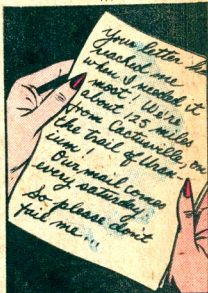 Your letter has
reached me
when I needed it
most! We're
about 125 miles
from Cactusville, on
the trail of Uran-
ium!
Our mail comes
every Saturday
So please don't
fail me...